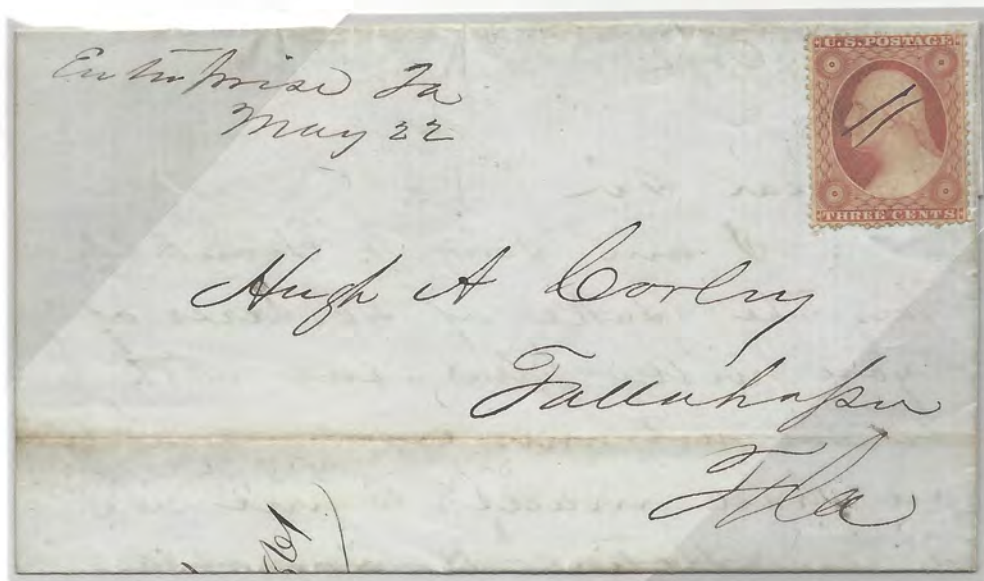 Enterprise Fa
May 22
U.S. POSTAGE
THREE CENTS
Hugh A Corley
Tallahassee
Fla